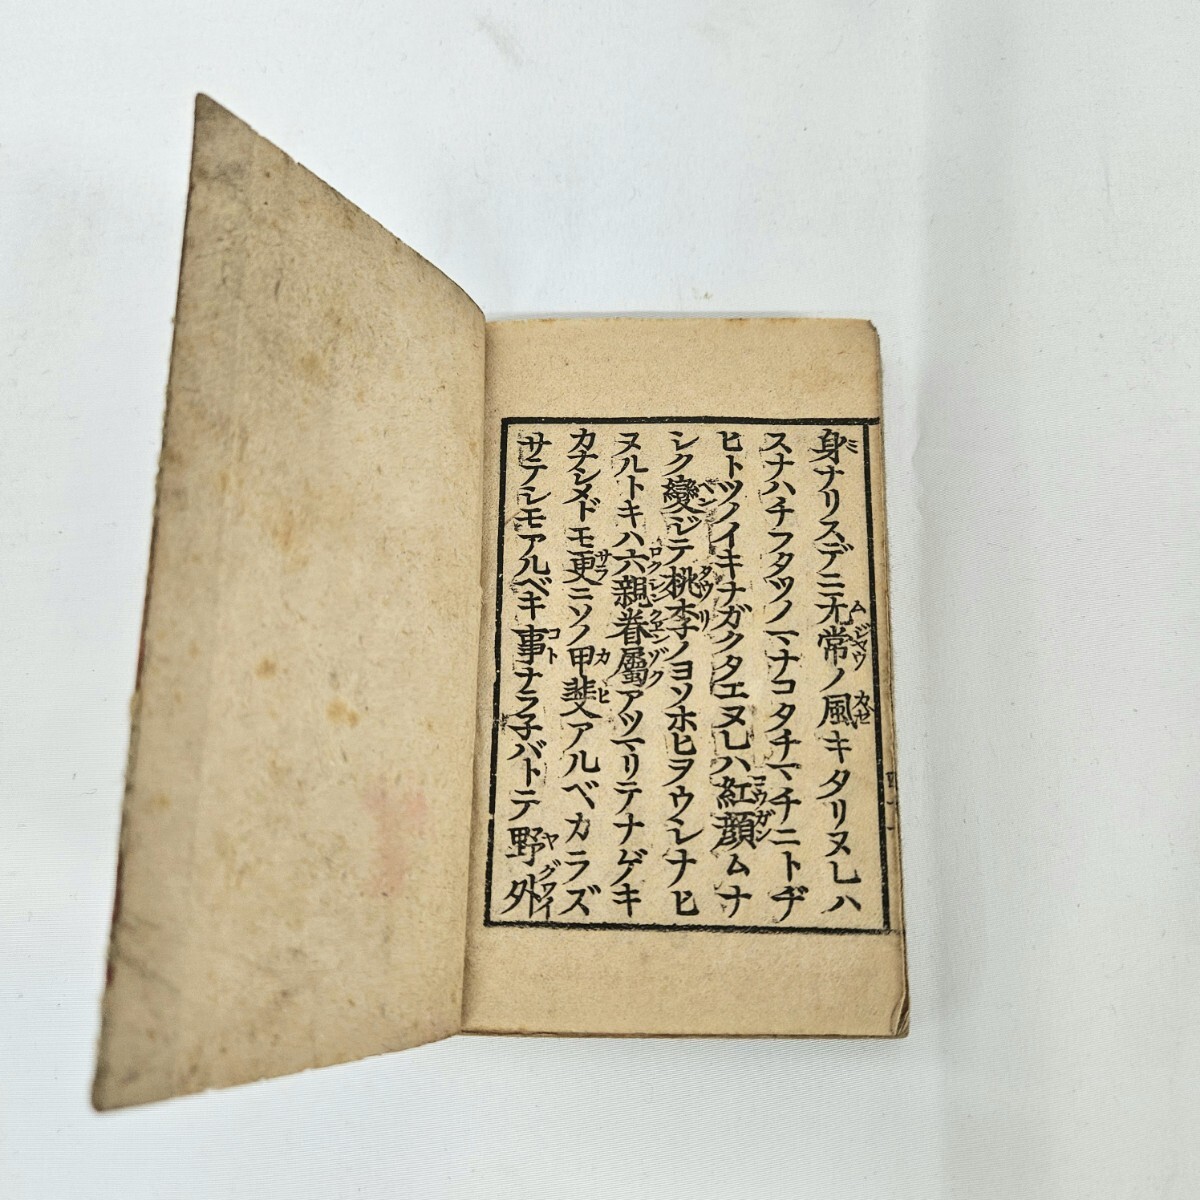 身ナリスデニ旡常ノ風キタリヌレハ
スナハチフタツノマナコタチマチニトヂ
ヒトツノイキナガクタエヌレハ紅顔ムナ
シク變ジテ桃李ノヨソホヒヲウシナヒ
ヌルトキハ六親眷屬アツマリテナゲキ
カナシメドモ更ニソノ甲斐アルベカラズ
サテシモアルベキ事ナラ子バトテ野外